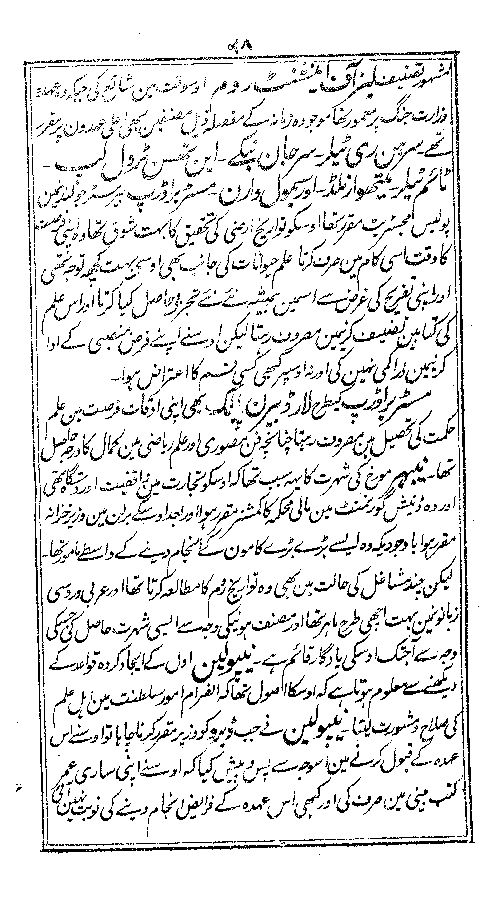 ۴۸
مشہور تصنیف لیز آف اوسوقت مین شایع کی جبکہ وہ عہدہ
وزارت جنگ پر مامور تھا موجودہ زمانہ کے مفصلہ ذیل مصنفین بھی اعلی عہدون پر مقرر
تھے سرہن ری ٹیلر۔ سرجان کے۔ این تھنس ٹرولوپ۔
ٹائم ٹیلر۔ میتھو ارنلڈ۔ اور سموئل وارن۔ مسٹر براڈرپ بیرسٹر جو لندن مین
پولیس مجسٹریٹ مقرر تھا اوسکو تواریخ ارضی کی تحقیق کا بہت شوق تھا وہ اپنی فرصت
کا وقت اسی کام مین صرف کرتا علم حیوانات کی جانب بھی اوسی بہت کچھ توجہ تھی
اور اپنی تفریح کی غرض سے اسمین ہمیشہ نئے نئے تجربے حاصل کیا کرتا اور اس علم
کی کتابین تصنیف کرنیمین مصروف رہتا لیکن اوسنے اپنے فرض منصبی کے ادا
کرنیمین ذرا کمی نہین کی اور نہ اوسپر کبھی کسی قسم کا اعتراض ہوا۔
مسٹر براڈرپ کیطرح لارڈ بیرن پالک بھی اپنی اوقات فرصت مین علم
حکمت کی تحصیل مین مصروف رہتا چنانچہ فن مصوری اور علم ریاضی مین کمال کا درجہ حاصل
تھا۔ نیبہر مورخ کی شہرت کا یہہ سبب تھا کہ اوسکو تجارت مین واقفیت اور دستگاہ تھی
اور وہ ڈنیش گورنمنٹ مین مالی محکمہ کا کمشنر مقرر ہوا اور بعد اوسکے برلن مین وزیر خزانہ
مقرر ہوا باوجودیکہ وہ ایسے بڑے بڑے کامون کے انجام دینے کے واسطے مامور تھا۔
لیکن چند مشاغل کی حالت مین بھی وہ تواریخ روم کا مطالعہ کرتا تھا اور عربی و روسی
زبانونمین بہت اچھی طرح ماہر تھا اور مصنف ہونیکی وجہ سے ایسی شہرت حاصل کی جسکی
وجہ سے آجتک اوسکی یادگار قائم ہے۔ نیپولین اول کے ایجاد کردہ قواعد کے
دیکھنے سے معلوم ہوتا ہے کہ اوسکا اصول تھا کہ انصرام امور سلطنت مین اہل علم
کی صلاح و مشورت لیتا۔ نیپولین نے جب ڈیرو کو وزیر مقرر کرنا چاہا تو اوسنے اس
عہدہ کے قبول کرنے مین اسوجہ سے پس و پیش کیا کہ اوسنے اپنی ساری عمر
کتب بینی مین صرف کی اور کبھی اس عہدہ کے فرائض انجام دینے کی نوبت نہین آئی